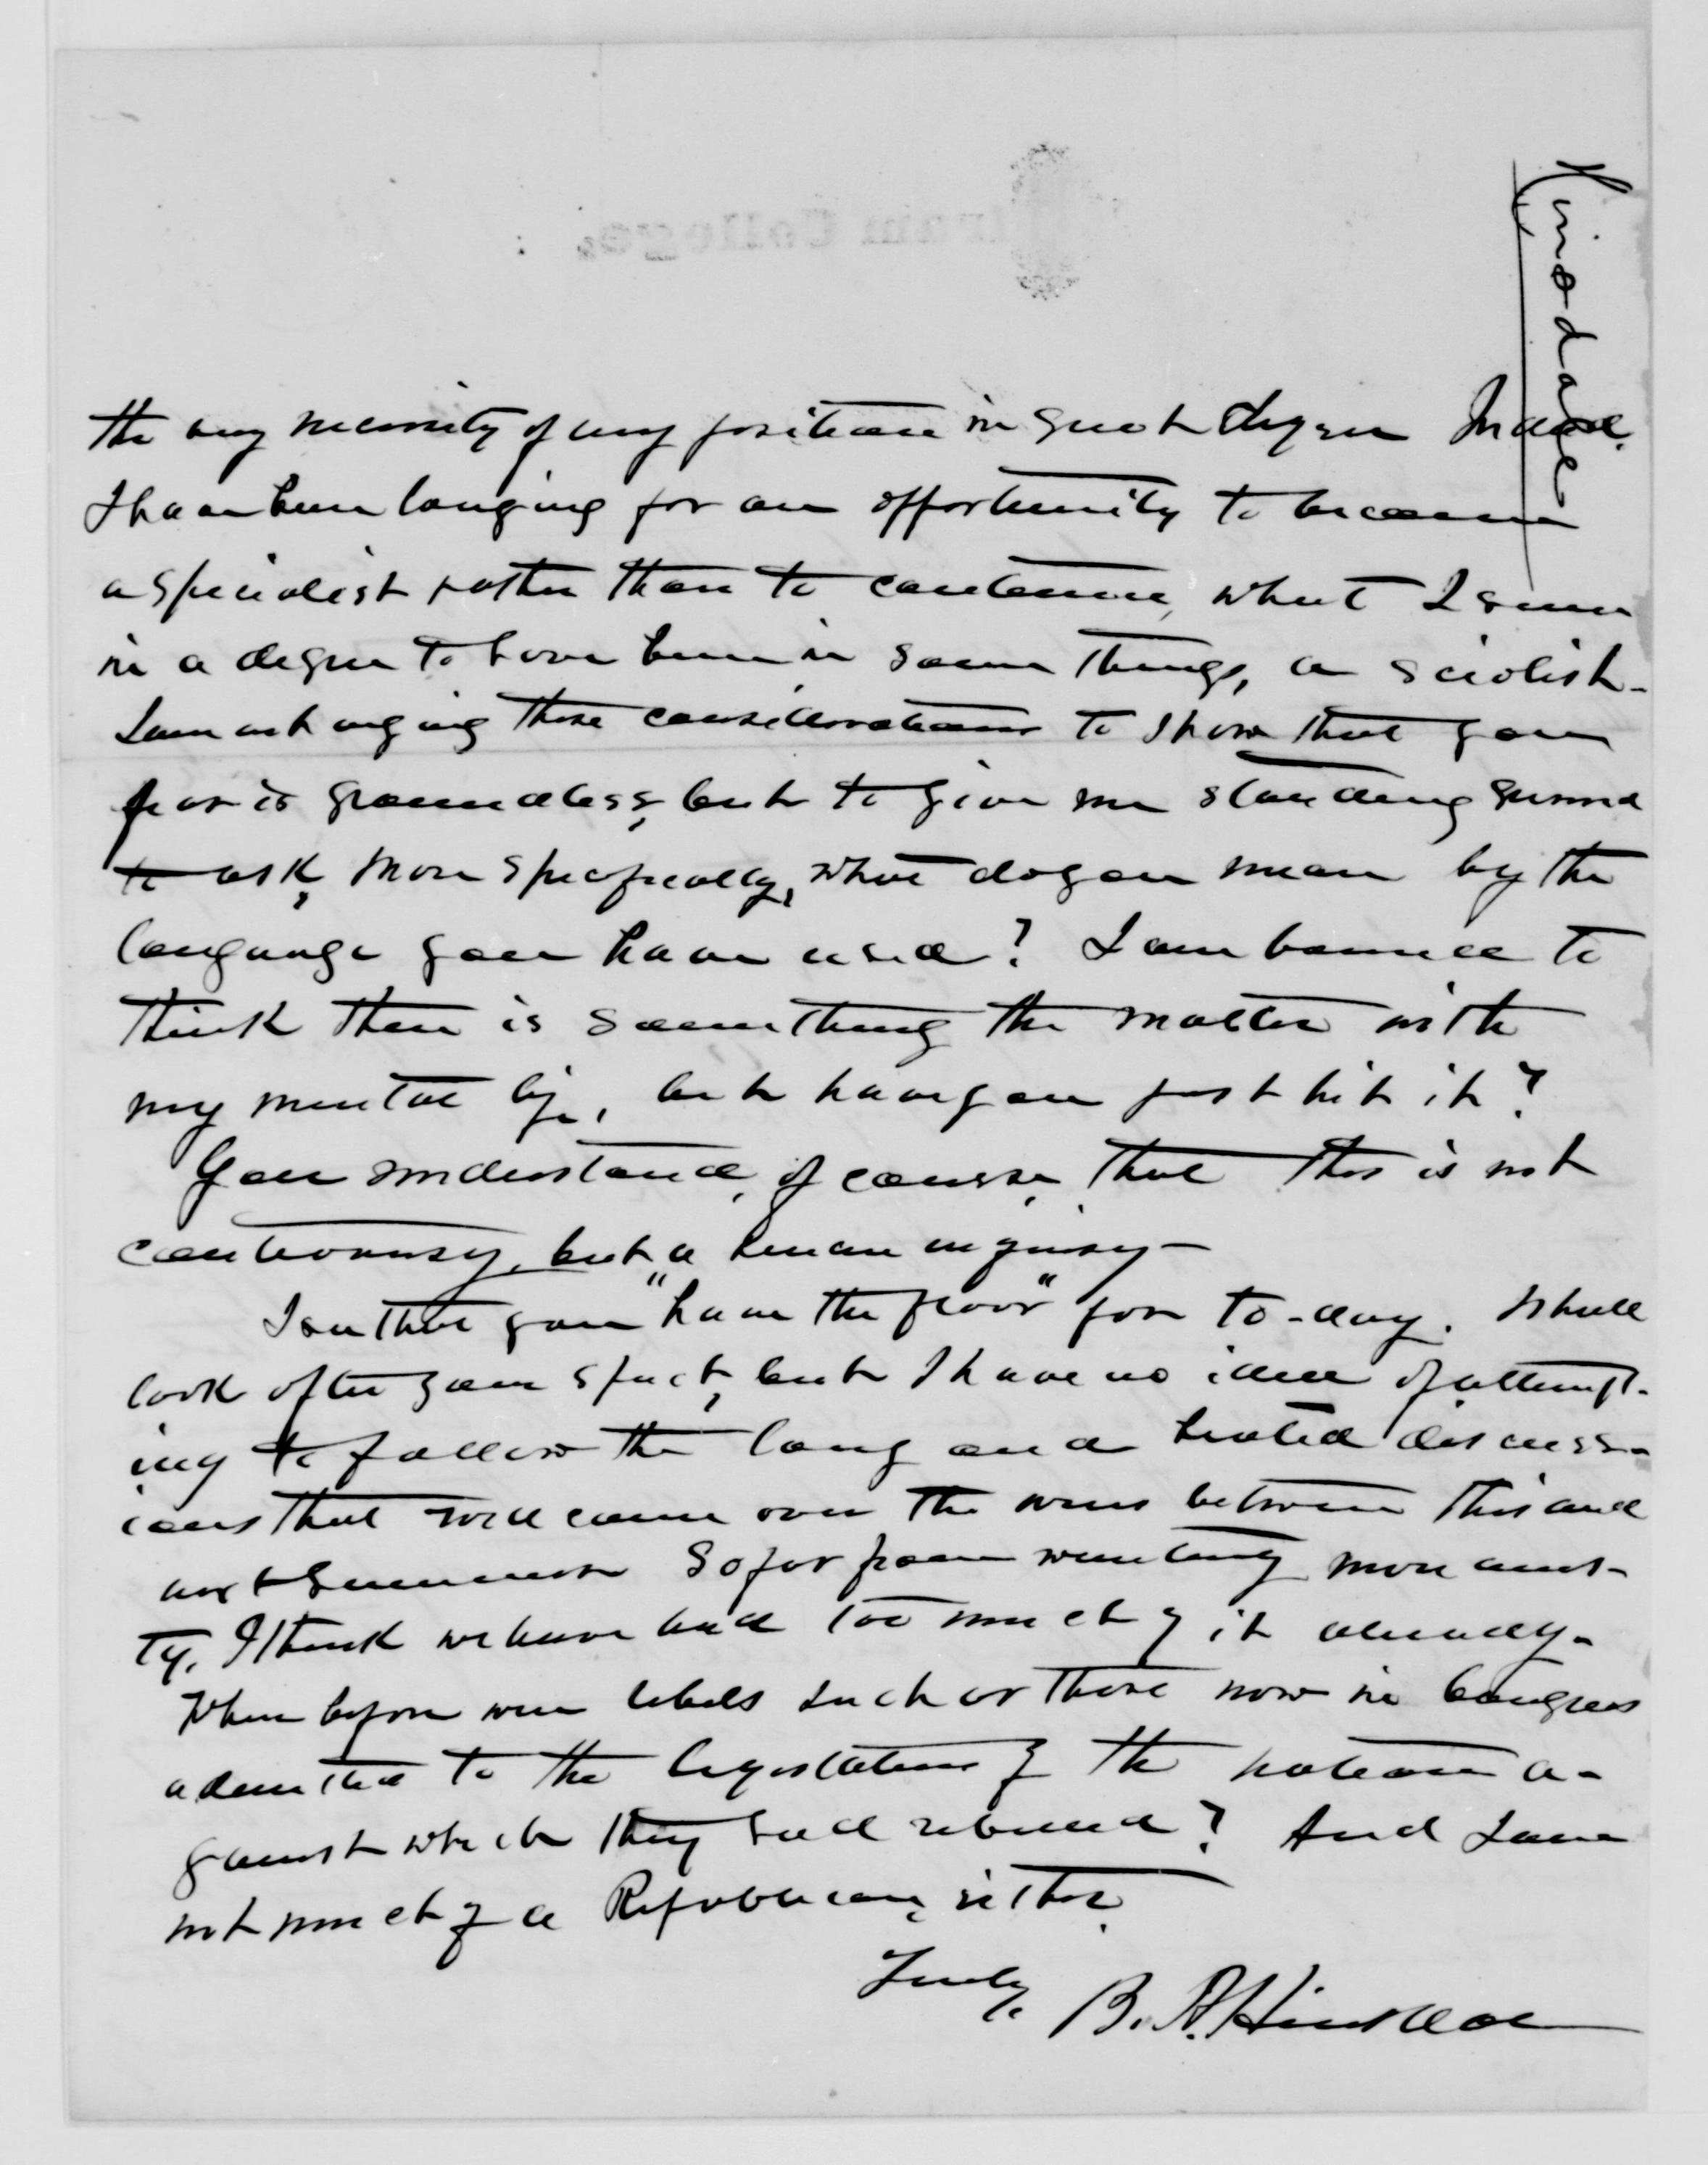 Hinsdale
the very necessity of my position in great degree Indeed.
I have been longing for an opportunity to become
a specialist rather than to continue, what I seem
in a degree to have been in some things, a sciolist-
I am not urging these considerations to show that your
fear is groundless, but to give me standing ground
to ask, more specifically, what do you mean by the
language you have used? I am bound to
think there is something the matter with
my mental life, but have you just hit it?
You understand, of course, that this is not
controversy, but a human inquiry-
I see that you "have the floor" for to-day. Shall
look after your speech, but I have no idea of attempt-
ing to follow the long and heated discuss-
ions that will come over the wires between this and
next Summer So far from wanting more amnes-
ty, I think we have had too much of it already.
When before were rebels such as those now in Congress
admitted to the legislature of the nation a-
gainst which they had rebelled? And I am
not much of a Republican, either.
Truly,
B. A. Hinsdale